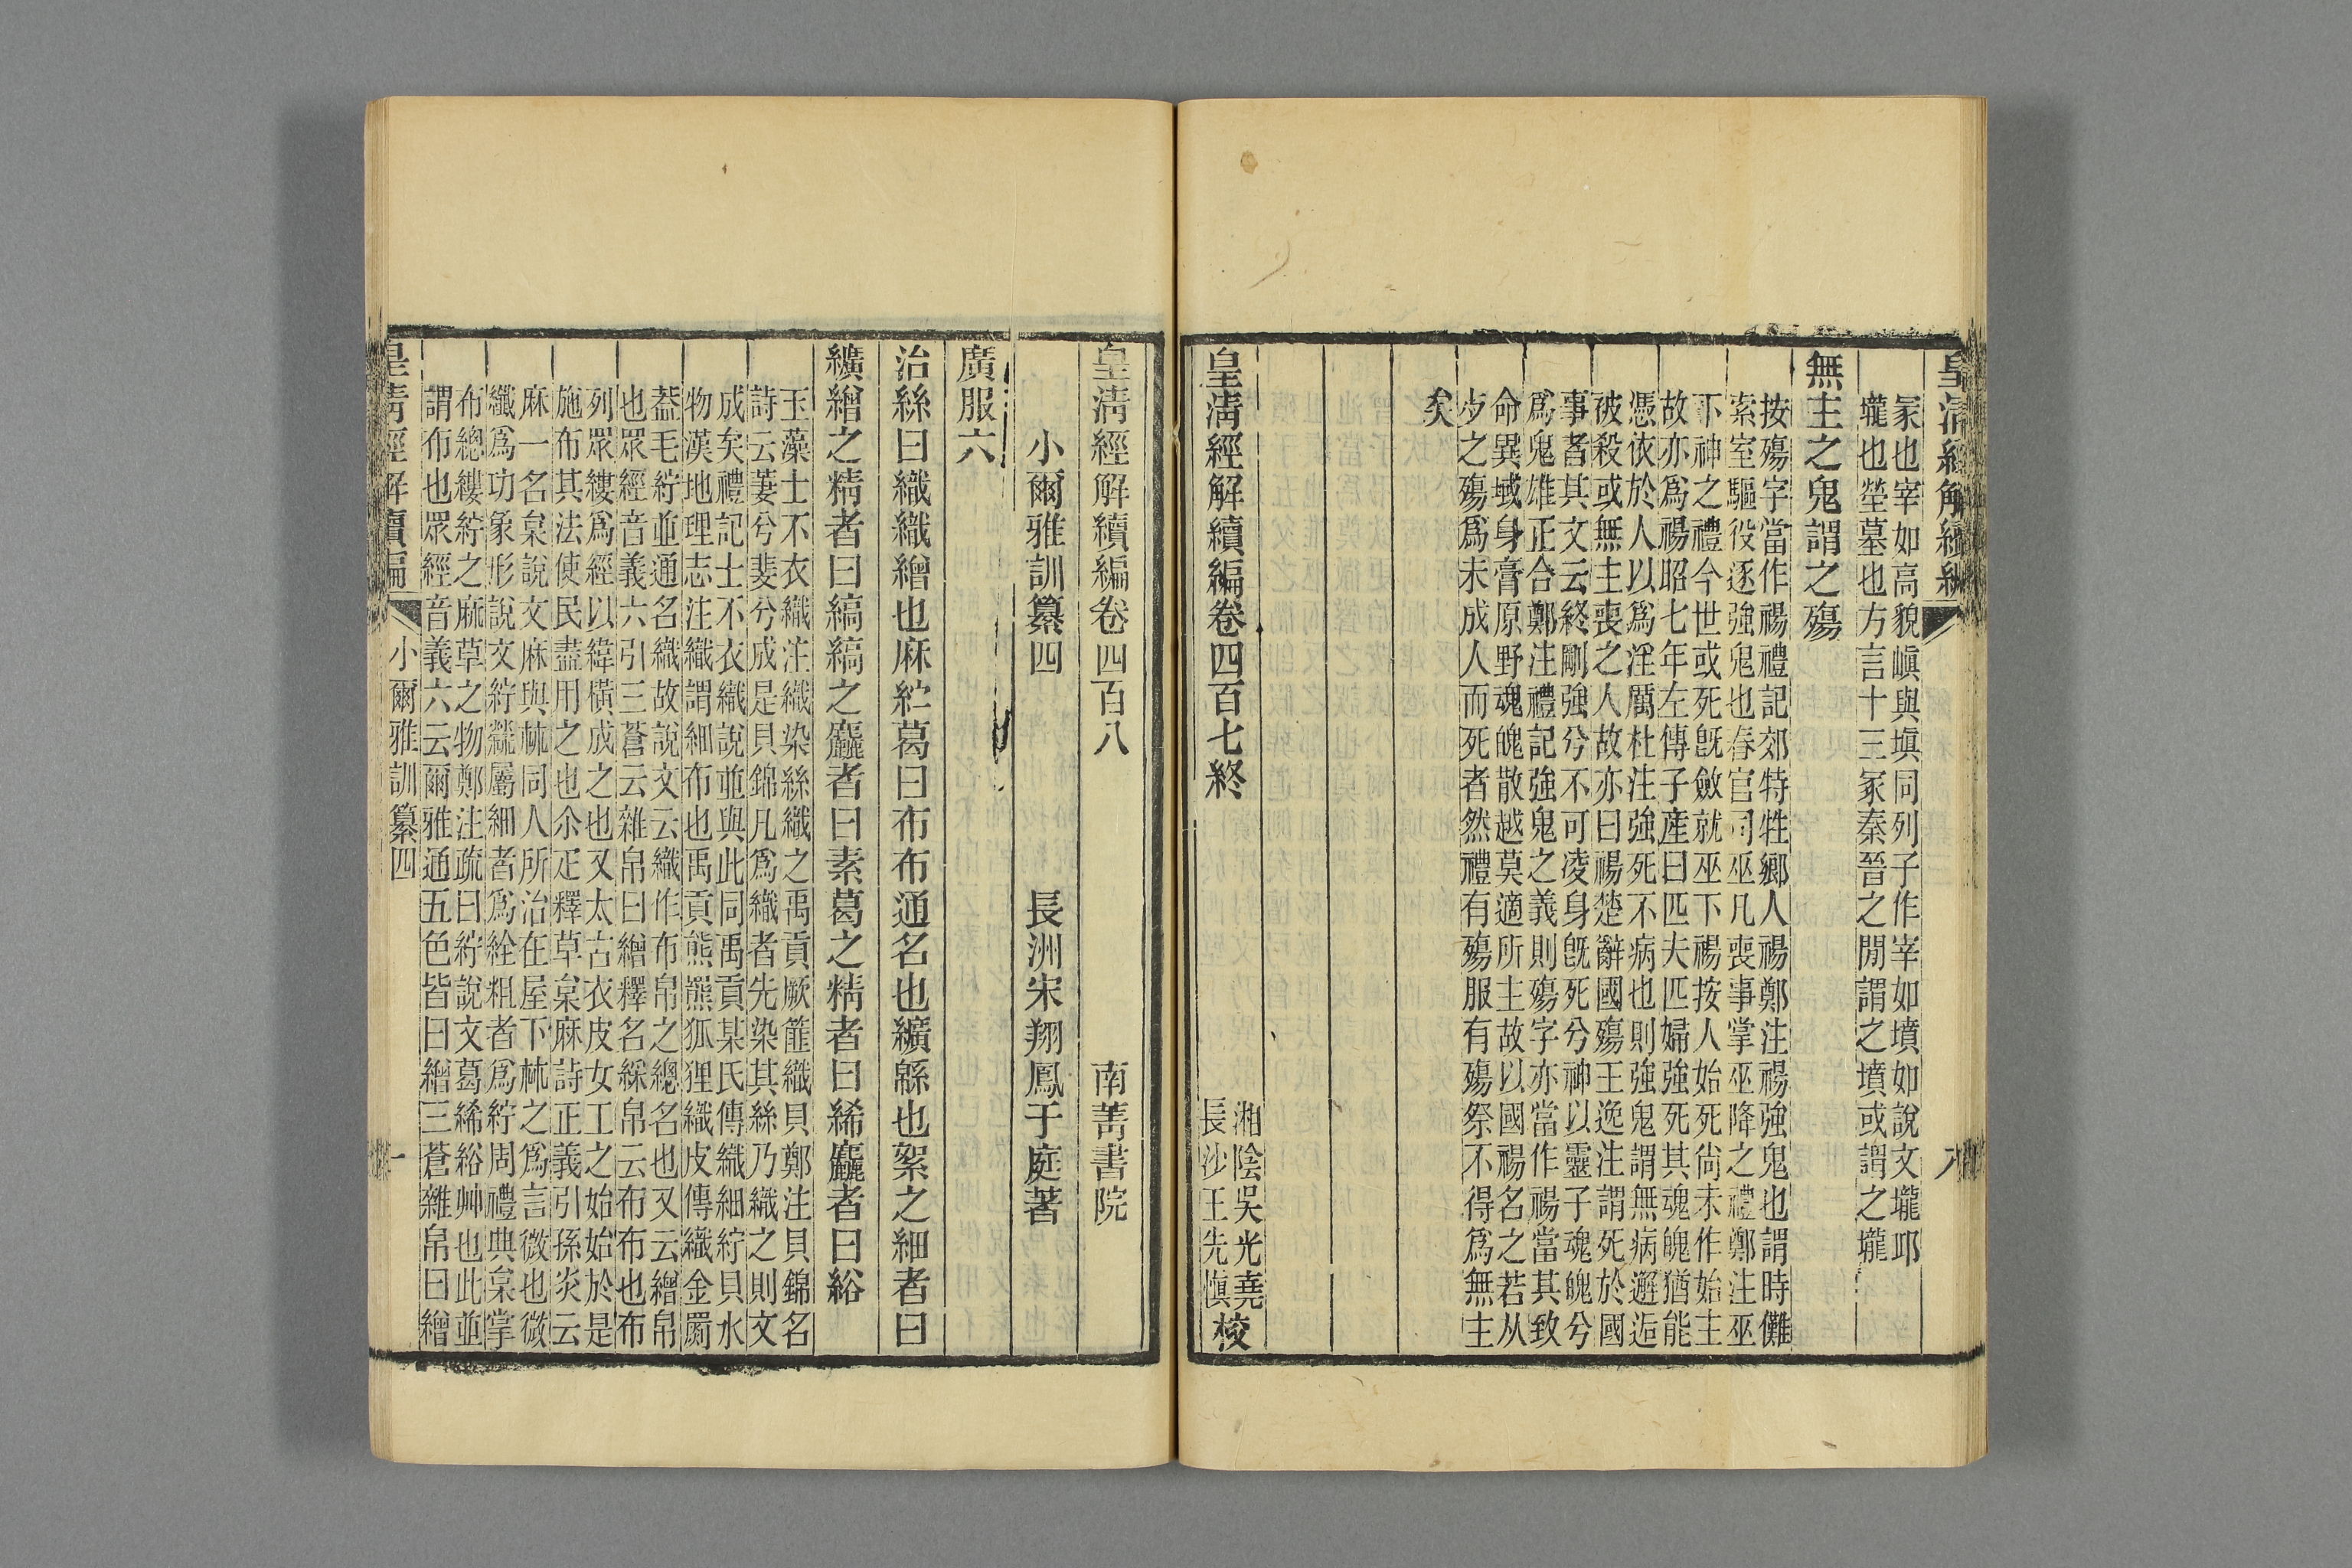 冢也宰如高貌嵮與塡同列子作宰如墳如說文壠卭
壠也塋墓也方言十三冢秦晉之閒謂之墳或謂之壠
無主之鬼謂之殤
按殤字當作禓禮記郊特牲鄉人禓鄭注禓強鬼也謂時儺
索室驅役逐強鬼也春官司巫凡喪事掌巫降之禮鄭注巫
下神之禮今世或死旣斂就巫下禓按人始死尙未作始主
故亦爲禓昭七年左傳子產曰匹夫匹婦強死其魂魄猶能
憑依於人以爲淫厲杜注強死不病也則強鬼謂無病邂逅
被殺或無主喪之人故亦曰禓楚辭國殤王逸注謂死於國
事者其文云終剛強兮不可凌身旣死兮神以靈子魂魄兮
爲鬼雄正合鄭注禮記強鬼之義則殤字亦當作禓當其致
命異域身膏原野魂魄散越莫適所主故以國禓名之若从
歺之殤爲未成人而死者然禮有殤服有殤祭不得爲無主
矣
皇淸經解續編卷四百七終
湘陰吳光堯
長沙王先愼校
皇淸經解續編卷四百八
南菁書院
小爾雅訓纂四
長洲宋翔鳳于庭著
廣服六
治絲曰織織繒也麻紵葛曰布布通名也纊緜也絮之細者曰
纊繒之精者曰縞縞之麤者曰素葛之精者曰絺麤者曰綌
玉藻士不衣織注織染絲織之禹貢厥篚織貝鄭注貝錦名
詩云萋兮斐兮成是貝錦凡爲織者先染其絲乃織之則文
成矣禮記士不衣織說並與此同禹貢某氏傳織細紵貝水
物漢地理志注織謂細布也禹貢熊羆狐狸織皮傳織金罽
葢毛紵並通名織故說文云織作布帛之總名也又云繒帛
也眾經音義六引三蒼云雜帛曰繒釋名綵帛云布布也布
列眾縷爲經以緯橫成之也又太古衣皮女工之始始於是
施布其法使民盡用之也尒疋釋草枲麻詩正義引孫炎云
麻一名枲說文麻與𣏟同人所治在屋下𣏟之爲言微也微
纖爲功象形說文紵檾屬細者爲絟粗者爲紵周禮典枲掌
布總縷紵之麻草之物鄭注疏曰紵說文葛絺綌艸也此並
謂布也眾經音義六云爾雅通五色皆曰繒三蒼雜帛曰繒
皇淸經解續編
小爾雅訓纂四
一